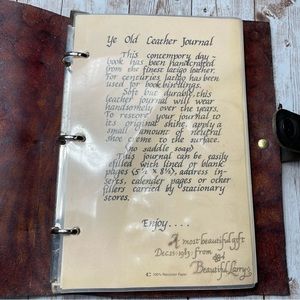 Ye Old Leather Journal
This contempory day-
book has been handcrafted
from the finest latigo leather.
For centuries, latigo has been
used for bookbindings.
Soft but durable, this
leather journal will wear
handsomely over the years.
To restore your journal to
its original shine, apply a
small amount of neutral
shoe creme to the surface.
(no saddle soap)
This journal can be easily
refilled with lined or blank
pages (5½ x 8½), address in-
serts, calender pages or other
fillers carried by stationary
stores.
Enjoy....
A most beautiful gift
Dec. 25, 1983 from
Beautiful Larry
100% Recycled Paper